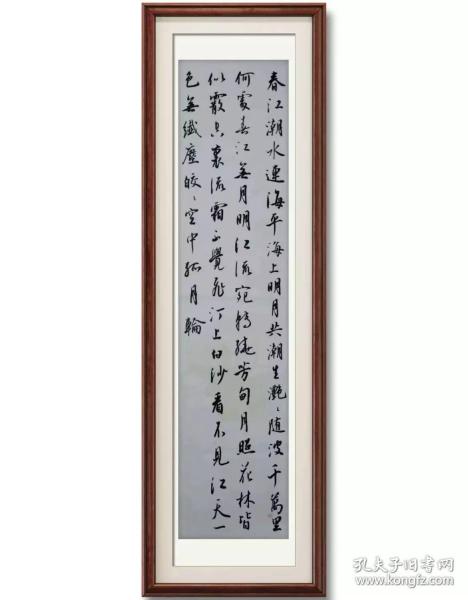 春江潮水連海平海上明月共潮生灔〻随波千萬里
何處春江無月明江流宛轉繞芳甸月照花林皆
似霰空裏流霜不覺飛汀上白沙看不見江天一
色無纖塵皎〻空中孤月輪
孔夫子旧书网
www.kongfz.com